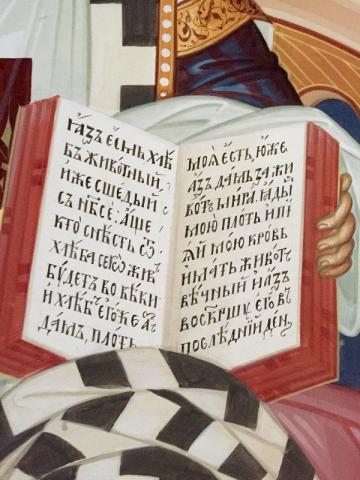 ꙗ҆́зъ є҆́смь хлѣ́
бъ живо́тный,
и҆́же сшедый
съ нб҃сѐ: а҆́ще
кто̀ снѣ́сть ѿ
хлѣ́ба сегѡ̀ жи́въ
бꙋ́детъ во вѣ́ки
и҆ хлѣ́бъ є҆го́же а҆́зъ
да́мъ, пло́ть
моѧ̀ є҆́сть, ю҆́же
а҆́зъ да́мъ за жи
во́тъ мі́ра. ꙗ҆ды́й
мою̀ пло́ть и҆ пі
ѧ́й мою̀ кро́вь
и҆́мать живо́тъ
вѣ́чный и҆ а҆́зъ
воскрⷭ҇шꙋ̀ є҆го̀ въ
послѣ́днїй де́н